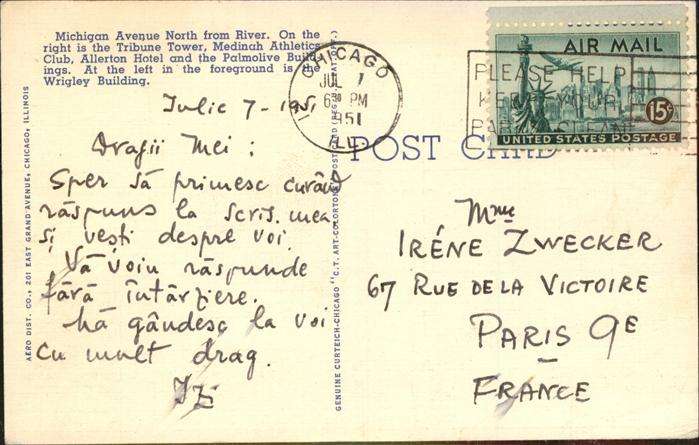 Michigan Avenue North from River. On the
right is the Tribune Tower, Medinah Athletic
Club, Allerton Hotel and the Palmolive Build-
ings. At the left in the foreground is the
Wrigley Building.
CHICAGO
JUL 7
6 30 PM
1951
ILL.
PLEASE HELP
KEEP YOUR
AIR MAIL
15¢
UNITED STATES POSTAGE
POST CARD
Iulie 7 - 1951
Dragii Mei :
Sper să primesc curând
răspuns la scris. mea
și vești despre voi.
Vă voiu răspunde
fără întârziere.
Mă gândesc la voi
cu mult drag.
Izi
Mme
IRÉNE ZWECKER
67 RUE DE LA VICTOIRE
PARIS 9E
FRANCE
AERO DIST. CO., 201 EAST GRAND AVENUE, CHICAGO, ILLINOIS
GENUINE CURTEICH-CHICAGO "C.T. ART-COLORTONE" POST CARD (REG. U.S. PAT. OFF.)